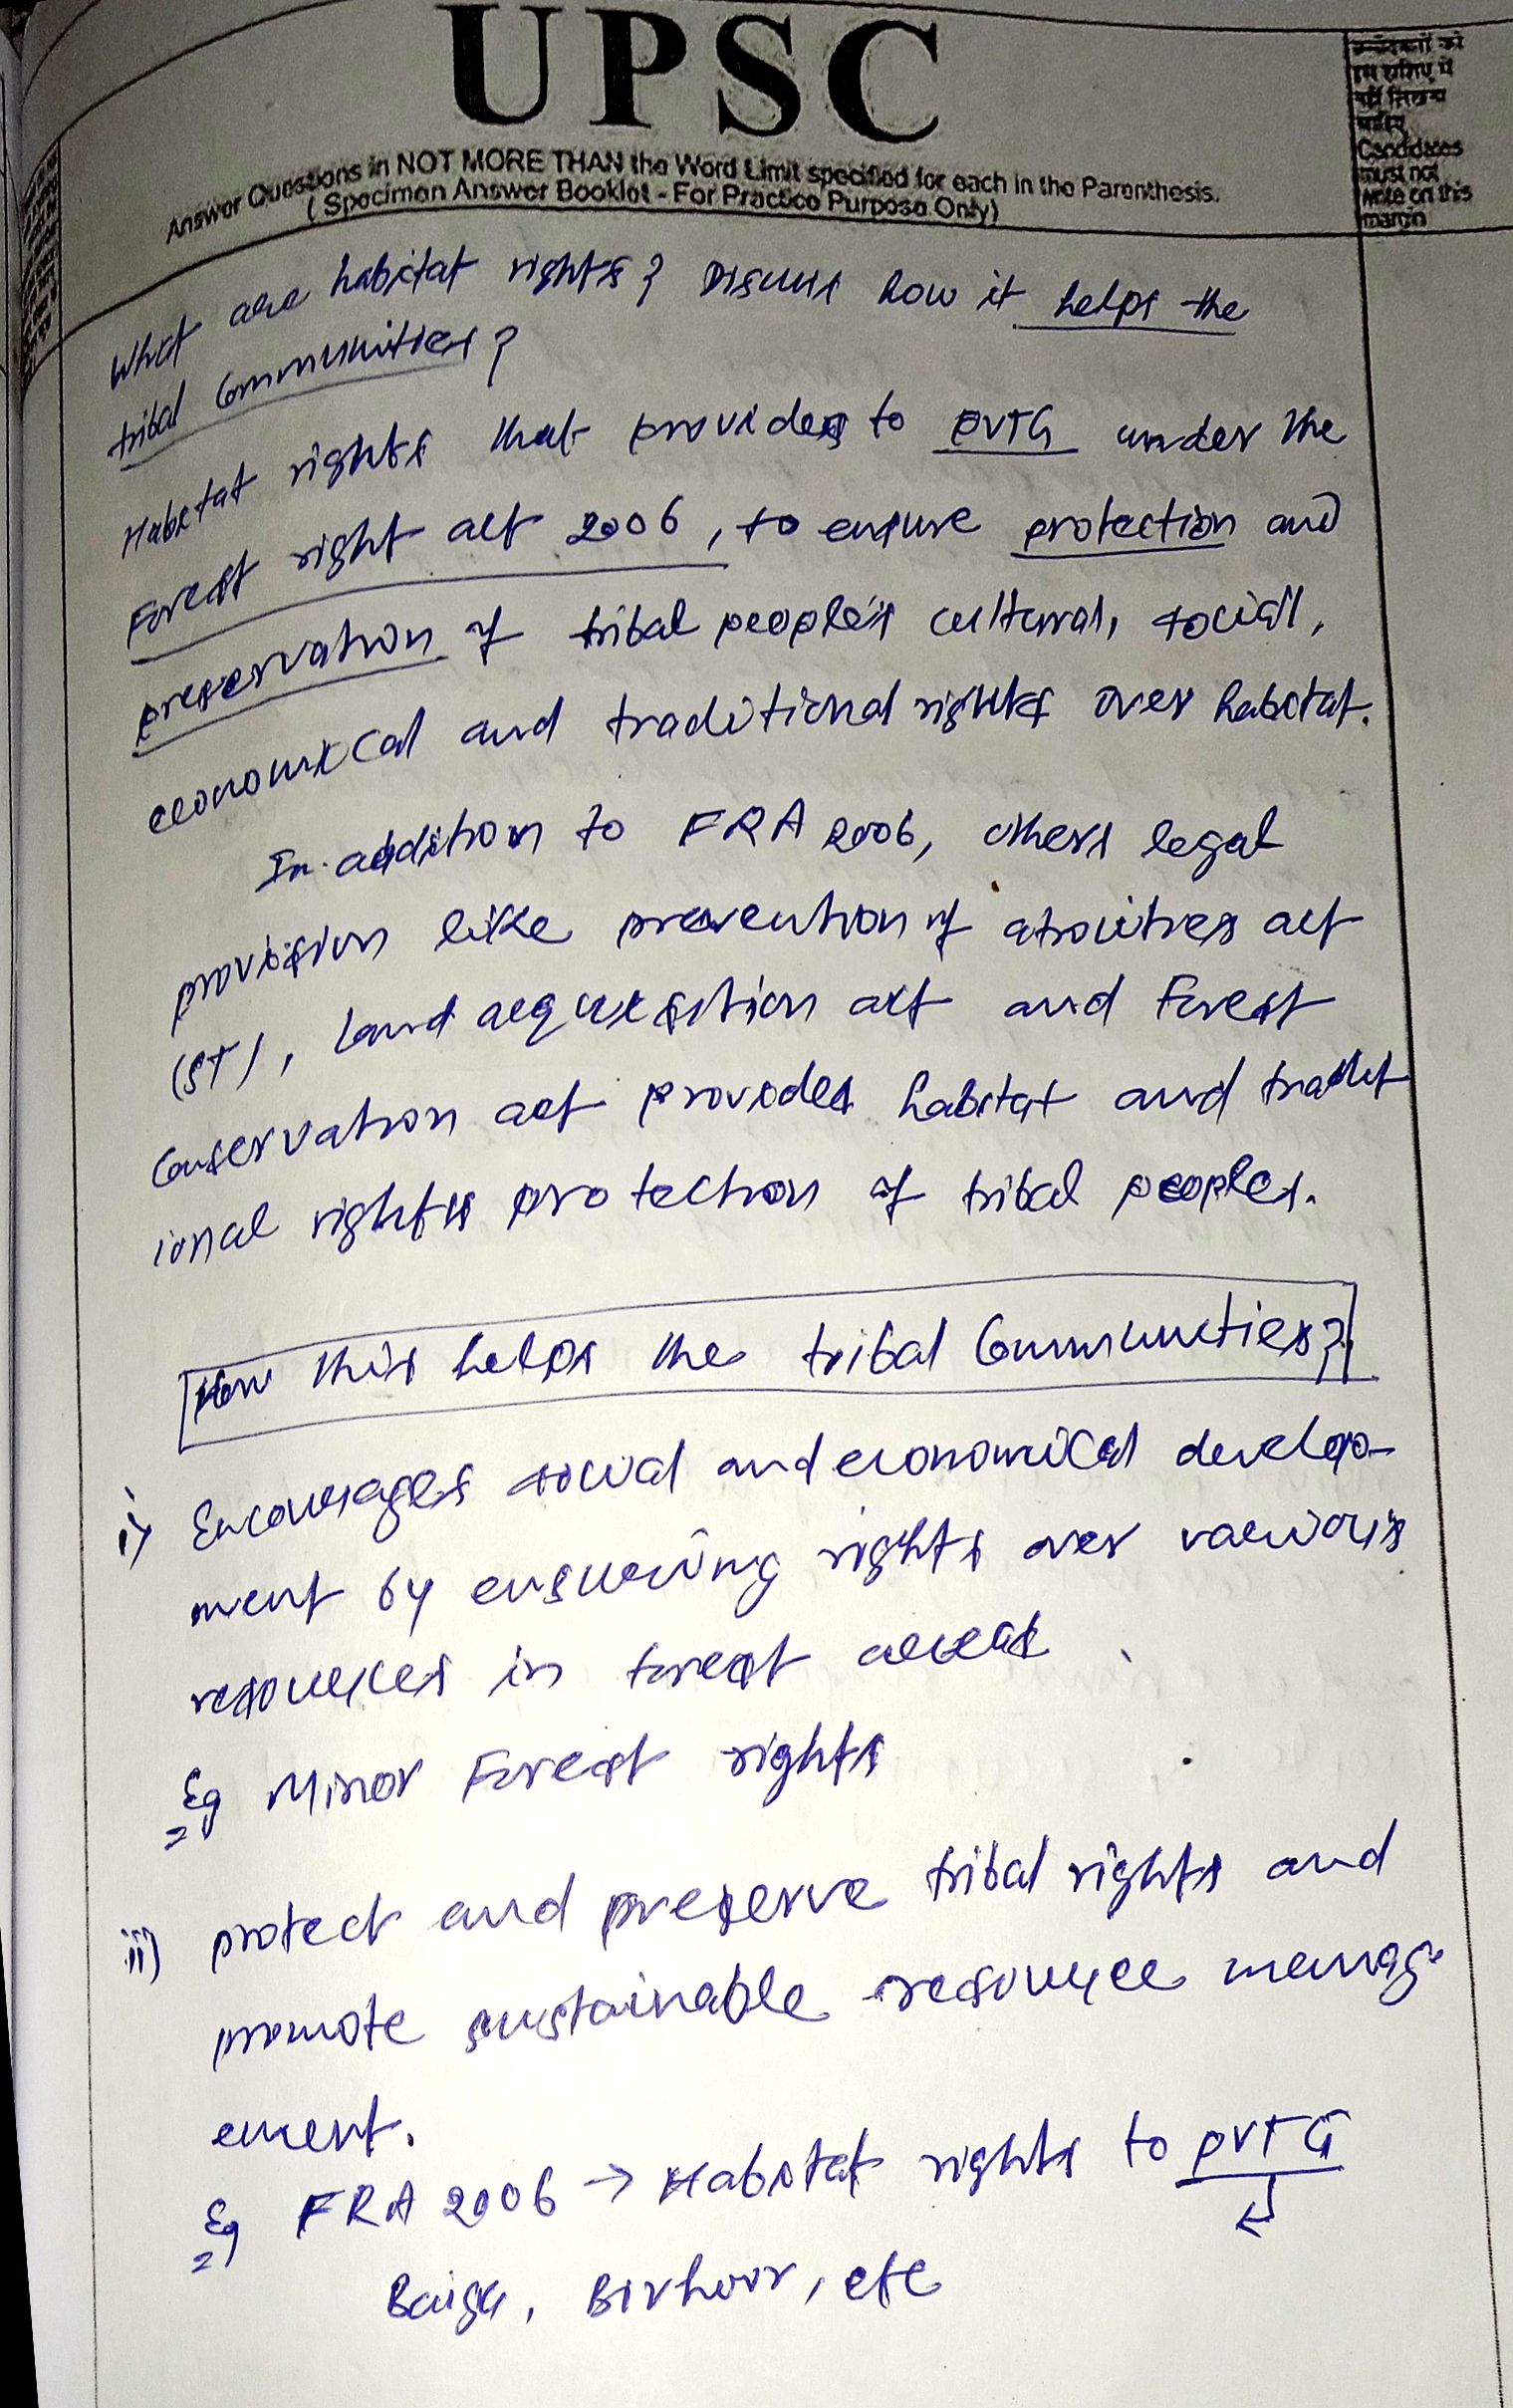 UPSC
Answer Questions in NOT MORE THAN the Word Limit specified for each in the Parenthesis.
( Specimen Answer Booklet - For Practice Purpose Only)
उम्मीदवारों को
इस हाशिए में
नहीं लिखना
चाहिए
Candidates
must not
write on this
margin
What are habitat rights? Discuss how it helps the
tribal Communities?
Habitat rights that provides to PVTG under the
Forest right act 2006, to ensure protection and
preservation of tribal people's cultural, social,
economical and traditional rights over habitat.
In addition to FRA 2006, others legal
provision like prevention of atrocities act
(ST), Land acquisition act and Forest
Conservation act provides habitat and tradit
ional rights protection of tribal peoples.
How this helps the tribal Communities?
i) Encourages social and economical develop-
ment by ensuring rights over various
resources in forest areas
Eg Minor Forest rights
ii) protect and preserve tribal rights and
promote sustainable resource manag-
ement.
Eg FRA 2006 → Habitat rights to PVTG
Baiga, Birhor, etc